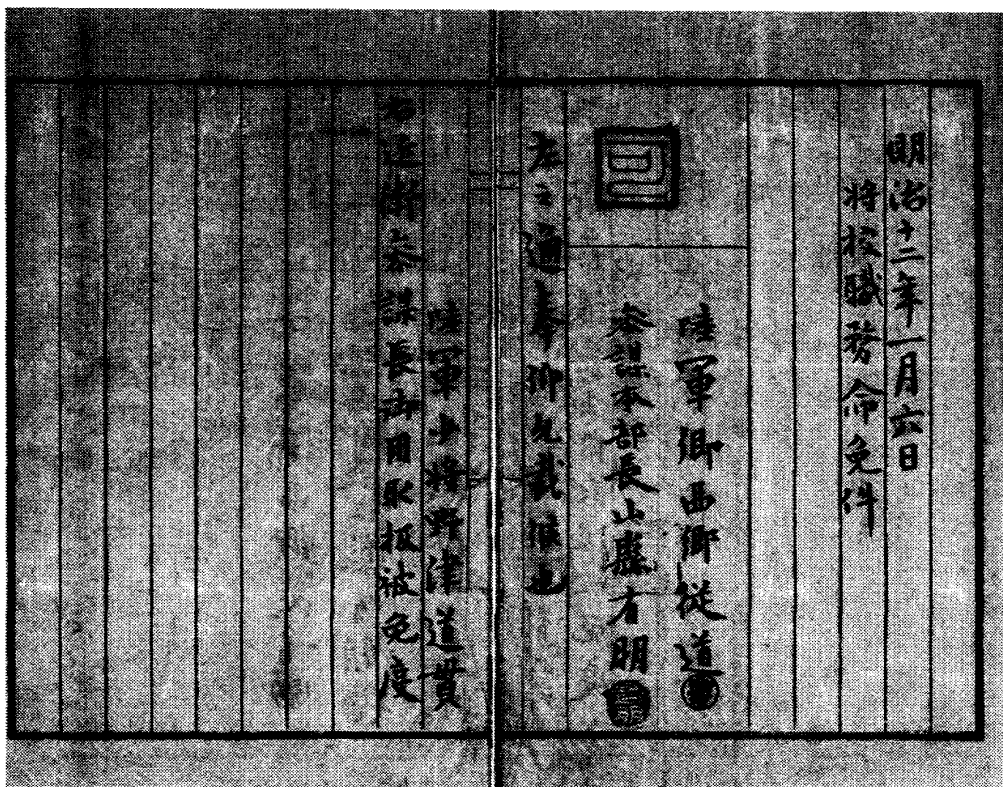 明治十二年一月六日
将校職務命免件
陸軍卿西郷従道
参謀本部長山縣有明
左之通奉仰允裁候也
陸軍少将野津道貫
右近衛参謀長御用取扱被免度